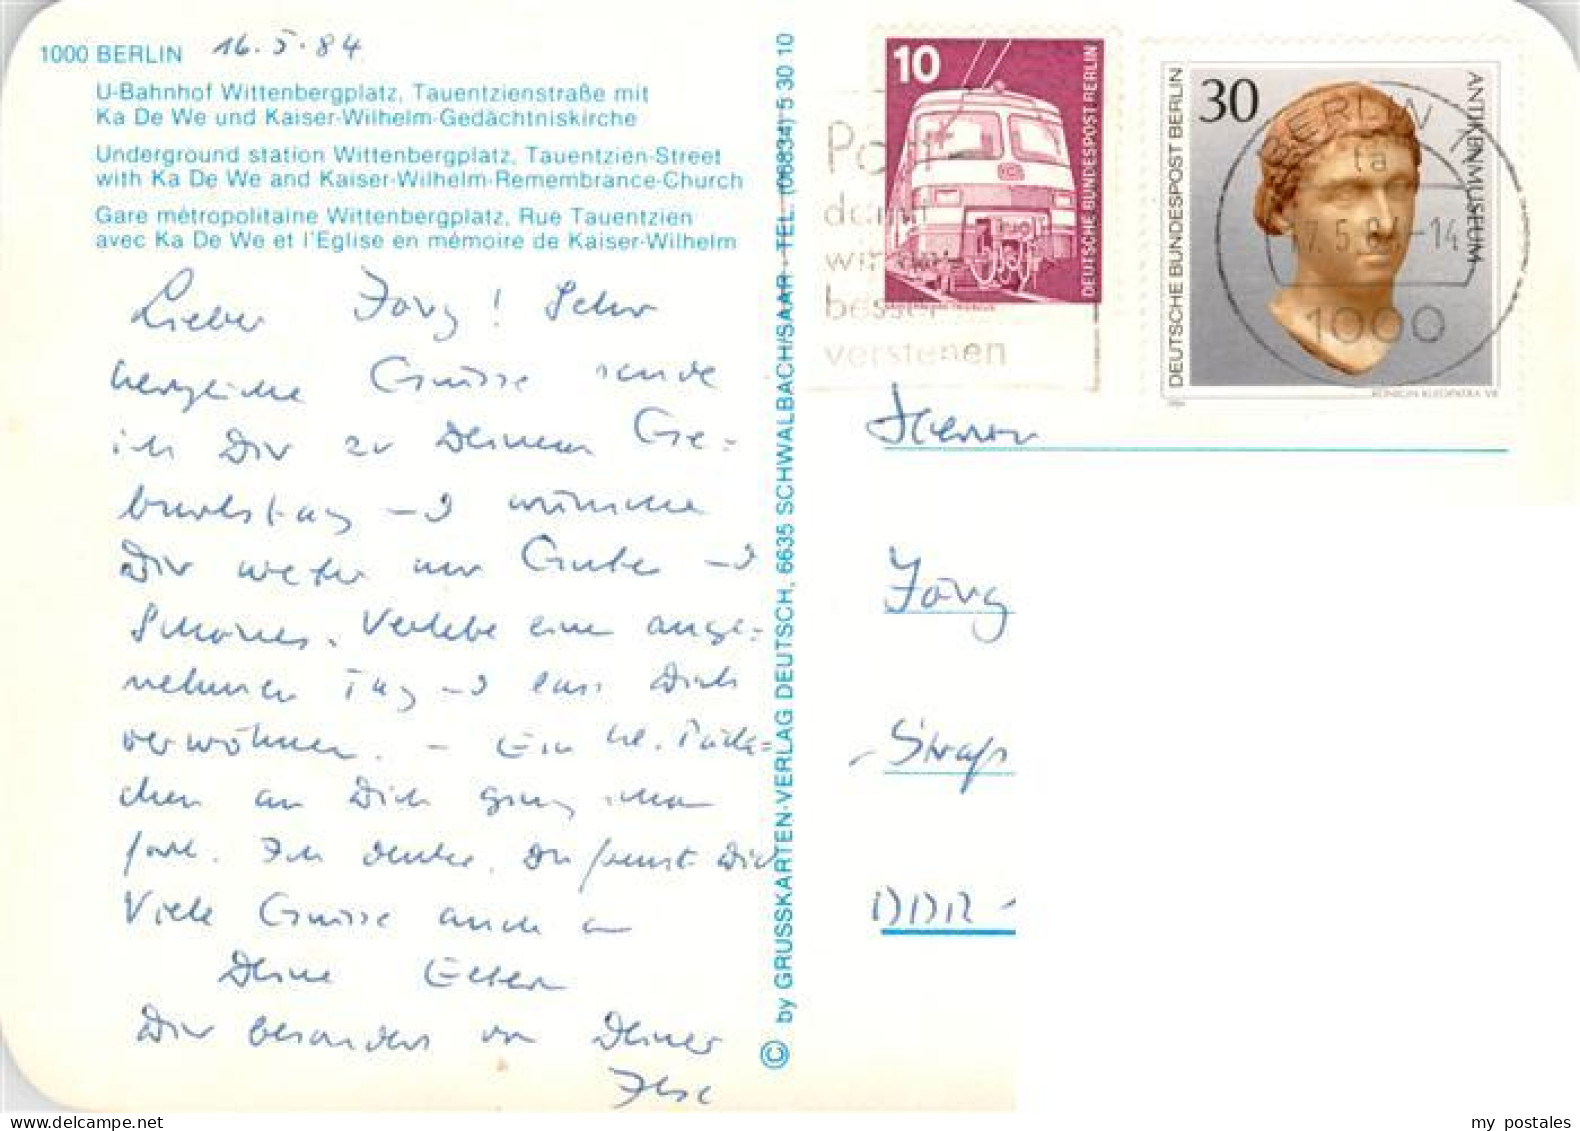 1000 BERLIN 16.5.84
U-Bahnhof Wittenbergplatz, Tauentzienstraße mit
Ka De We und Kaiser-Wilhelm-Gedächtniskirche
Underground station Wittenbergplatz, Tauentzien-Street
with Ka De We and Kaiser-Wilhelm-Remembrance-Church
Gare métropolitaine Wittenbergplatz, Rue Tauentzien
avec Ka De We et l'Eglise en mémoire de Kaiser-Wilhelm
Lieber Jörg! Sehr
herzliche Grüsse sende
ich Dir zu Deinem Ge=
burtstag und wünsche
Dir weiter nur Gutes und
Schönes. Verlebe einen ange=
nehmen Tag und lass Dich
verwöhnen. - Ein kl. Päck=
chen an Dich ging schon
fort. Ich denke, Du freust Dich
Viele Grüsse auch an
Deine Eltern
Dir besonders von Deiner
Ilse
© by GRUSSKARTEN-VERLAG DEUTSCH, 6635 SCHWALBACH/SAAR · TEL. (06834) 5 30 10
10
DEUTSCHE BUNDESPOST BERLIN
Post
damit
wir uns
besser
verstehen
30
DEUTSCHE BUNDESPOST BERLIN
ANTIKENMUSEUM
KÖNIGIN KLEOPATRA VII
BERLIN
ta
17.5.84-14
1000
Herrn
Jörg
Straße
DDR-
my postales